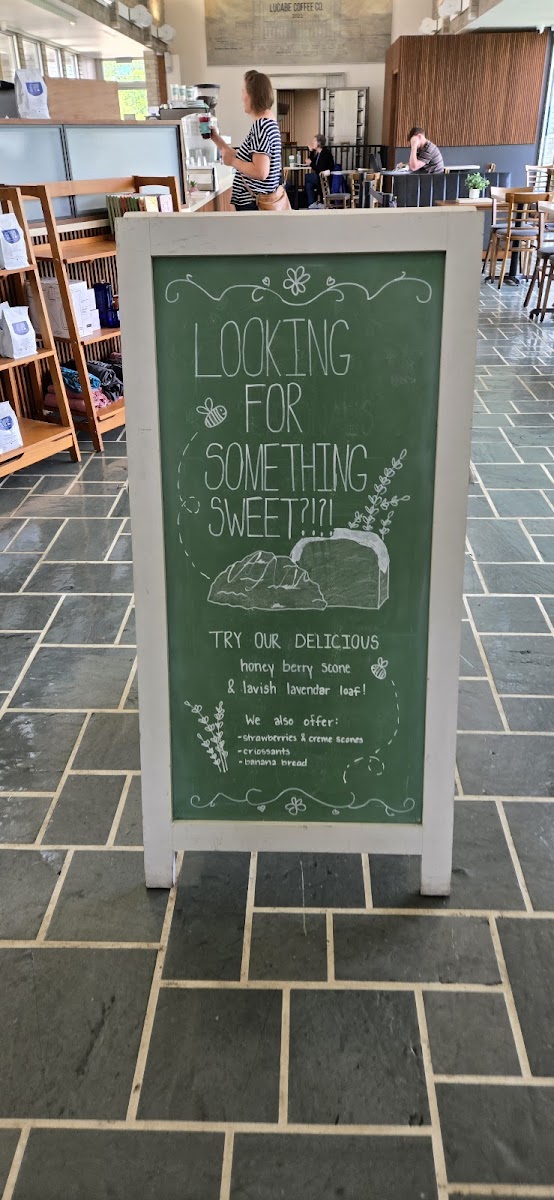 LUCABE COFFEE CO.
LOOKING
FOR
SOMETHING
SWEET?!?!
TRY OUR DELICIOUS
honey berry scone
& lavish lavendar loaf!
We also offer:
-strawberries & creme scones
-criossants
-banana bread